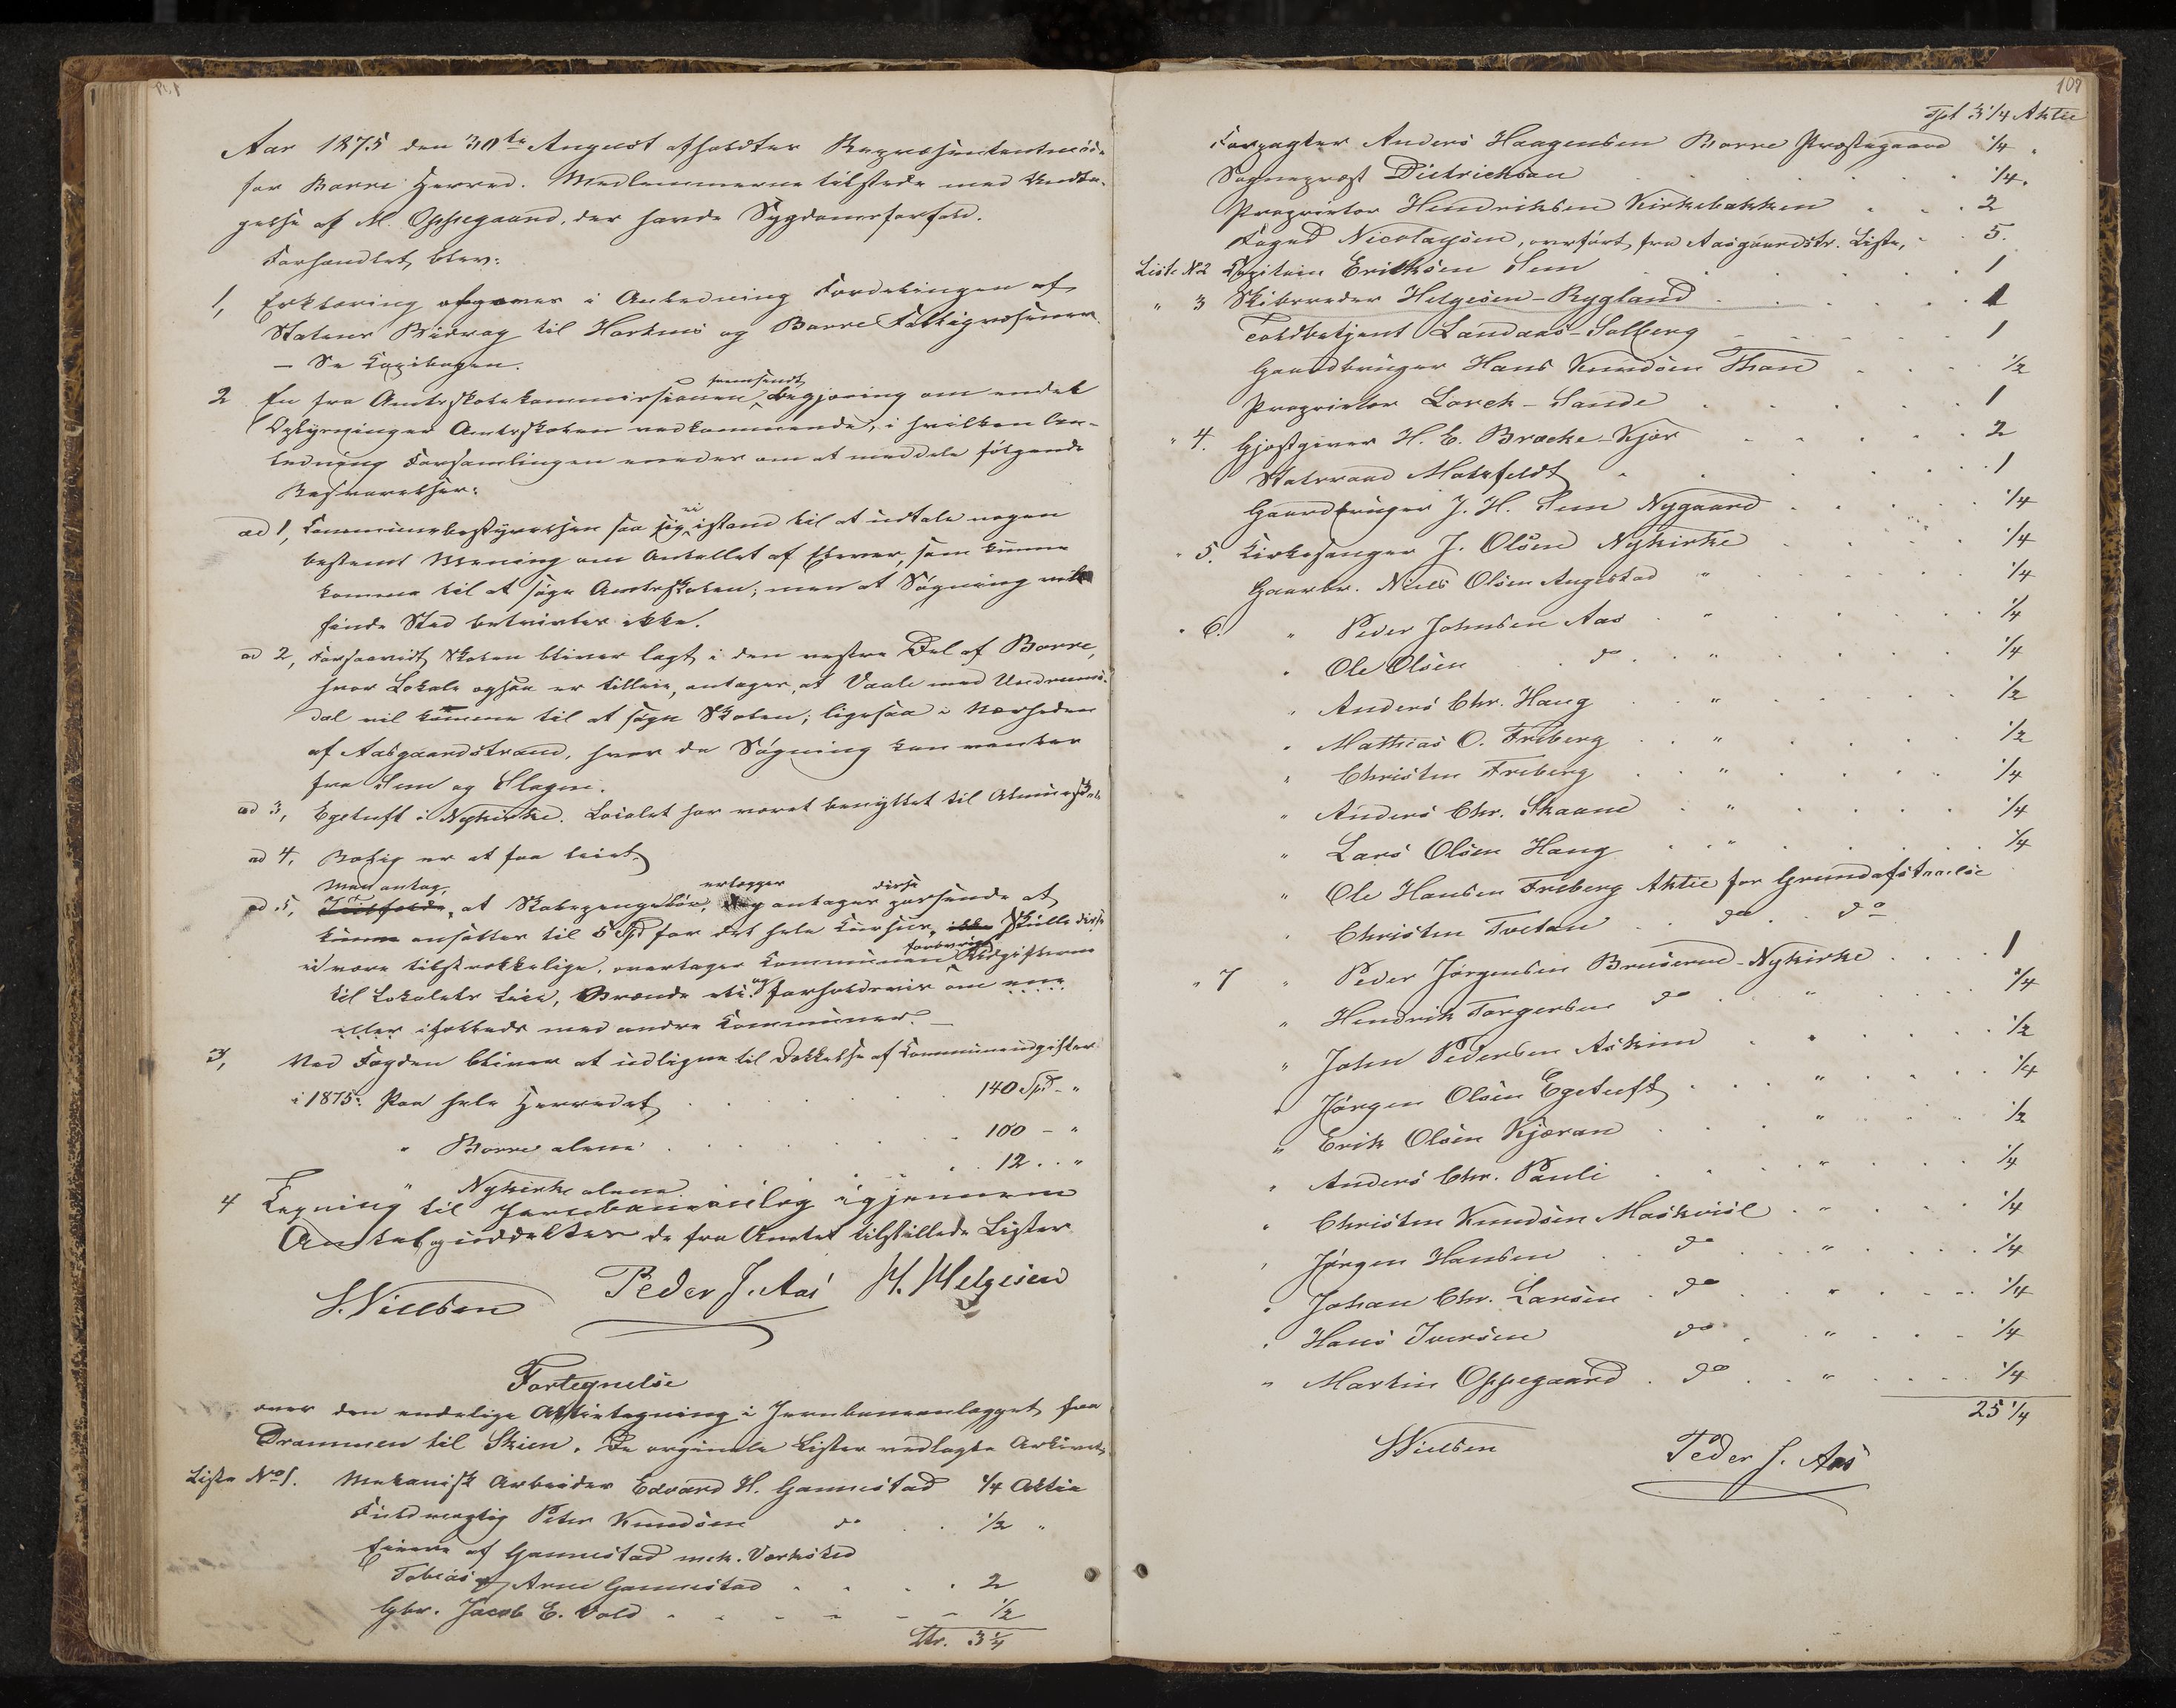 Aar 1875 den 30te August afholdtes Repræsentantmöde
for Borre Herred. Medlemmerne tilstede med Undta-
gelse af M. Oppegaard, der havde Sygdomsforfald.
Forhandlet blev:
1, Erklæring afgaves i Anledning Fordelingen af
Statens Bidrag til Hortens og Borre Fattigvæsener.
– Se Copibogen.
2 En fra Amtsskolekommissionen fremsendt Begjæring om endel
Oplysninger Amtsskolen vedkommende, i hvilken An-
ledning Forsamlingen enedes om at meddele fölgende
Besvarelser:
ad 1, Communebestyrelsen saa sig ei istand til at udtale nogen
bestemt Mening om Antallet af Elever, som kunne
komme til at söge Amtsskolen; men at Sögning vil
finde Sted betvivles ikke.
ad 2, Forsaavidt Skolen bliver lagt i den vestre Del af Borre,
hvor Lokale ogsaa er tilleie, antages, at Vaale med Undrums-
dal vil komme til at söge Skolen; ligesaa i Nærheden
af Aasgaardstrand, hvor da Sögning kan ventes
fra Sem og Slagen.
ad 3, Egetuft i Nykirke. Localet har været benyttet til Almueskole
ad 4, Bolig er at faa leiet.
ad 5, Man antag, at Skolepenge erlægges, disse antages passende at
kunne ansættes til 5 Spd for det hele Cursus, skulle disse
ei være tilstrækkelige, overtager Communen forövrigt Udgifterne
til Lokalets Leie, Brænde etc. og forholdsvis om ene
eller ifælleds med andre Communer. –
3, Ved Fogden bliver at udligne til Dækkelse af Communeudgifter
i 1875: Paa hele Herredet . . . . . 140 Spd – "
" Borre alene . . . . . 100 – "
" Nykirke alene . . . 12 . . "
4 Tegning til Jernbaneanlæg igjennem
Amtet og uddeltes de fra Amtet tilstillede Lister
S. Nielsen Peder J. Aas H. Helgesen
Fortegnelse
over den endelige Aktietegning i Jernbaneanlægget fra
Drammen til Skien. De orginale Lister vedlagte Arkivet.
Liste No 1. Mekanisk Arbeider Edvard H. Gannestad 1/4 Aktie
Fuldmægtig Peter Knudsen do . . 1/2 "
Eierne af Gannestad mek. Værksted
Tobias og Arne Gannestad . . . . 2
Gbr. Jacob E. Vold . . . . . . 1/2
Ltr. 3 1/4
107
Tpt 3 1/4 Aktie
Forpagter Anders Haagensen Borre Præstegaard 1/4 "
Sogneprest Dietrichson . . . . . 1/4.
Proprietær Hendriksen Kirkebakken . . . 2
Foged Nicolaysen, overfört fra Aasgaardstr. Liste, . . 5.
Liste No 2 Capitain Erichsen Sem . . . . . 1
" 3 Skibsreder Helgesen – Rygland . . . . . 1
Toldbetjent Landaas – Solberg . . . . . 1
Gaardbruger Hans Knudsen Thon . . . . 1/2
Proprietær Lorck – Sande . . . . . 1
" 4. Gjæstgiver H. E. Bracke – Kjær . . . . . 2
Statsraad Motzfeldt . . . . . . 1
Gaardbruger J. H. Sem Nygaard . . . . 1/4
" 5. Kirkesanger J. Olsen Nykirke . . . . 1/4
Gaarbr. Niels Olsen Augestad " . . . . 1/4
" 6. " Peder Johnsen Aas . " . . . . 1/4
" Ole Olsen . do . . " . . . . 1/4
" Anders Chr. Haug . . " . . . . 1/2
" Mathias O. Freberg . . " . . . . 1/2
" Christen Freberg . . " . . . . 1/4
" Anders Chr. Skaane . " . . . . 1/4
" Lars Olsen Haug . . " . . . . 1/4
" Ole Hansen Freberg Aktie for Grundafstaaelse
" Christen Tvetan . . do . . do
" 7 " Peder Jörgensen Bruserud – Nykirke . . . . 1
" Hendrik Torgersen do . . " . . . 1/4
" John Pedersen Askim . " . . . . 1/2
" Jörgen Olsen Egetuft . . . " . . . . 1/4
" Erik Olsen Kjæran . . . " . . . 1/2
" Anders Chr. Pauli . . . " . . . 1/4
" Christen Knudsen Maskvisl . " . . . 1/4
" Jörgen Hansen . . do . . " . . . 1/4
" Johan Chr. Larsen . do . . " . . . 1/4
" Hans Iversen do . . " . . . 1/4
" Martin Oppegaard . do . . " . . . 1/4
25 1/4
S Nielsen Peder J. Aas